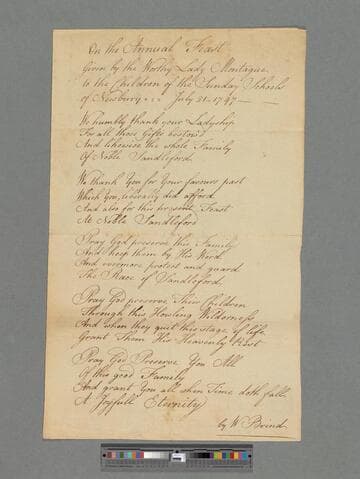 On the Annual Feast
Given by the Worthy Lady Montague
to the Children of the Sunday Schools
of Newbury July 21 1797
We humbly thank your Ladyship
For all those Gifts bestow'd
And likewise the whole Family
Of Noble Sandleford
We thank You for Your favours past
Which You, liberally did afford
And also for this present Feast
At Noble Sandleford
Pray God preserve this Family
And keep them by His Word
And evermore protect and guard
The Race of Sandleford.
Pray God preserve Thier Children
Through this Howling Wilderness
And when they quit this stage of life
Grant Them His Heavenly Rest
Pray God Preserve You All
Of this good Family
And grant You all when Time doth fall
A Joyfull Eternity
by W Brind